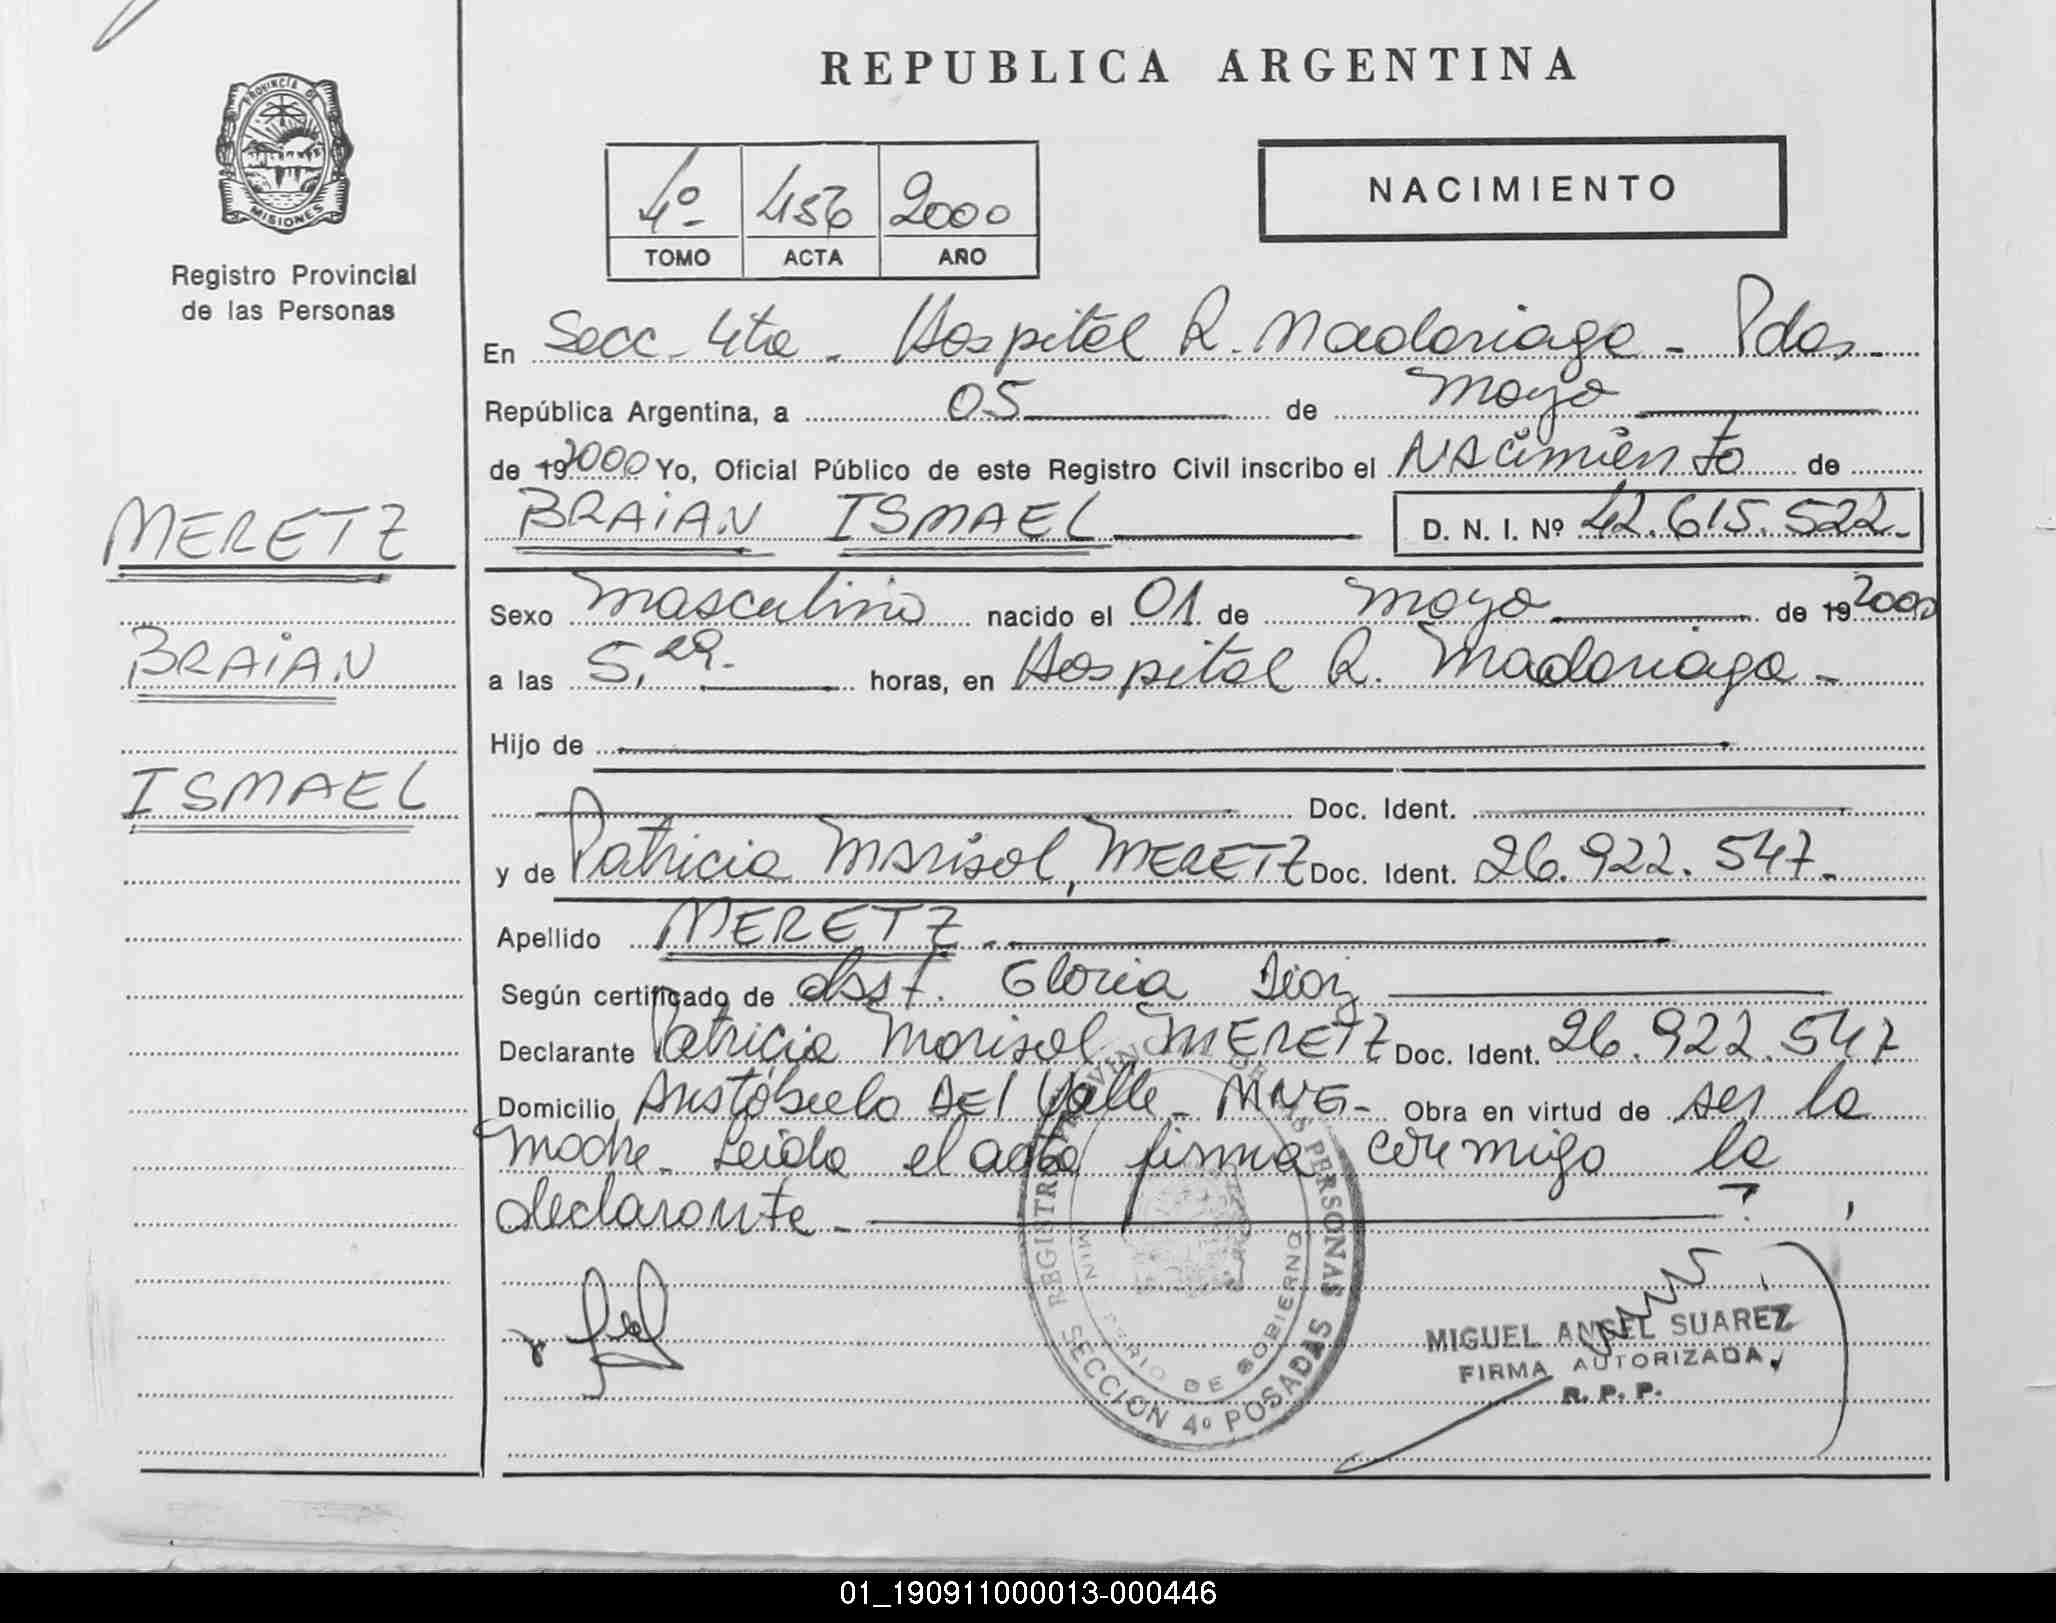 REPUBLICA ARGENTINA
PROVINCIA DE
MISIONES
Registro Provincial
de las Personas
4º 456 2000
TOMO ACTA AÑO
NACIMIENTO
En Secc. 4ta. Hospital R. Madariaga - Pdas.
República Argentina, a 05 de Mayo
de 192000 Yo, Oficial Público de este Registro Civil inscribo el NAcimiento de
BRAiAN ISMAEL D. N. I. Nº 42.615.522.-
MERETZ
BRAiAN
ISMAEL
Sexo Masculino nacido el 01 de Mayo de 192000
a las 5,29.- horas, en Hospital R. Madariaga -
Hijo de
Doc. Ident.
y de Patricia Marisol, MERETZ Doc. Ident. 26.922.547.-
Apellido MERETZ.-
Según certificado de obst. Gloria
Declarante Patricia Marisol MERETZ Doc. Ident. 26.922.547
Domicilio Aristóbulo DEl Valle - MNES- Obra en virtud de ser la
madre - Leida el acta firma conmigo la
declarante -
REGISTRO PROVINCIAL DE LAS PERSONAS
MINISTERIO DE GOBIERNO
SECCION 4º POSADAS
MIGUEL ANGEL SUAREZ
FIRMA AUTORIZADA
R. P. P.
01_190911000013-000446